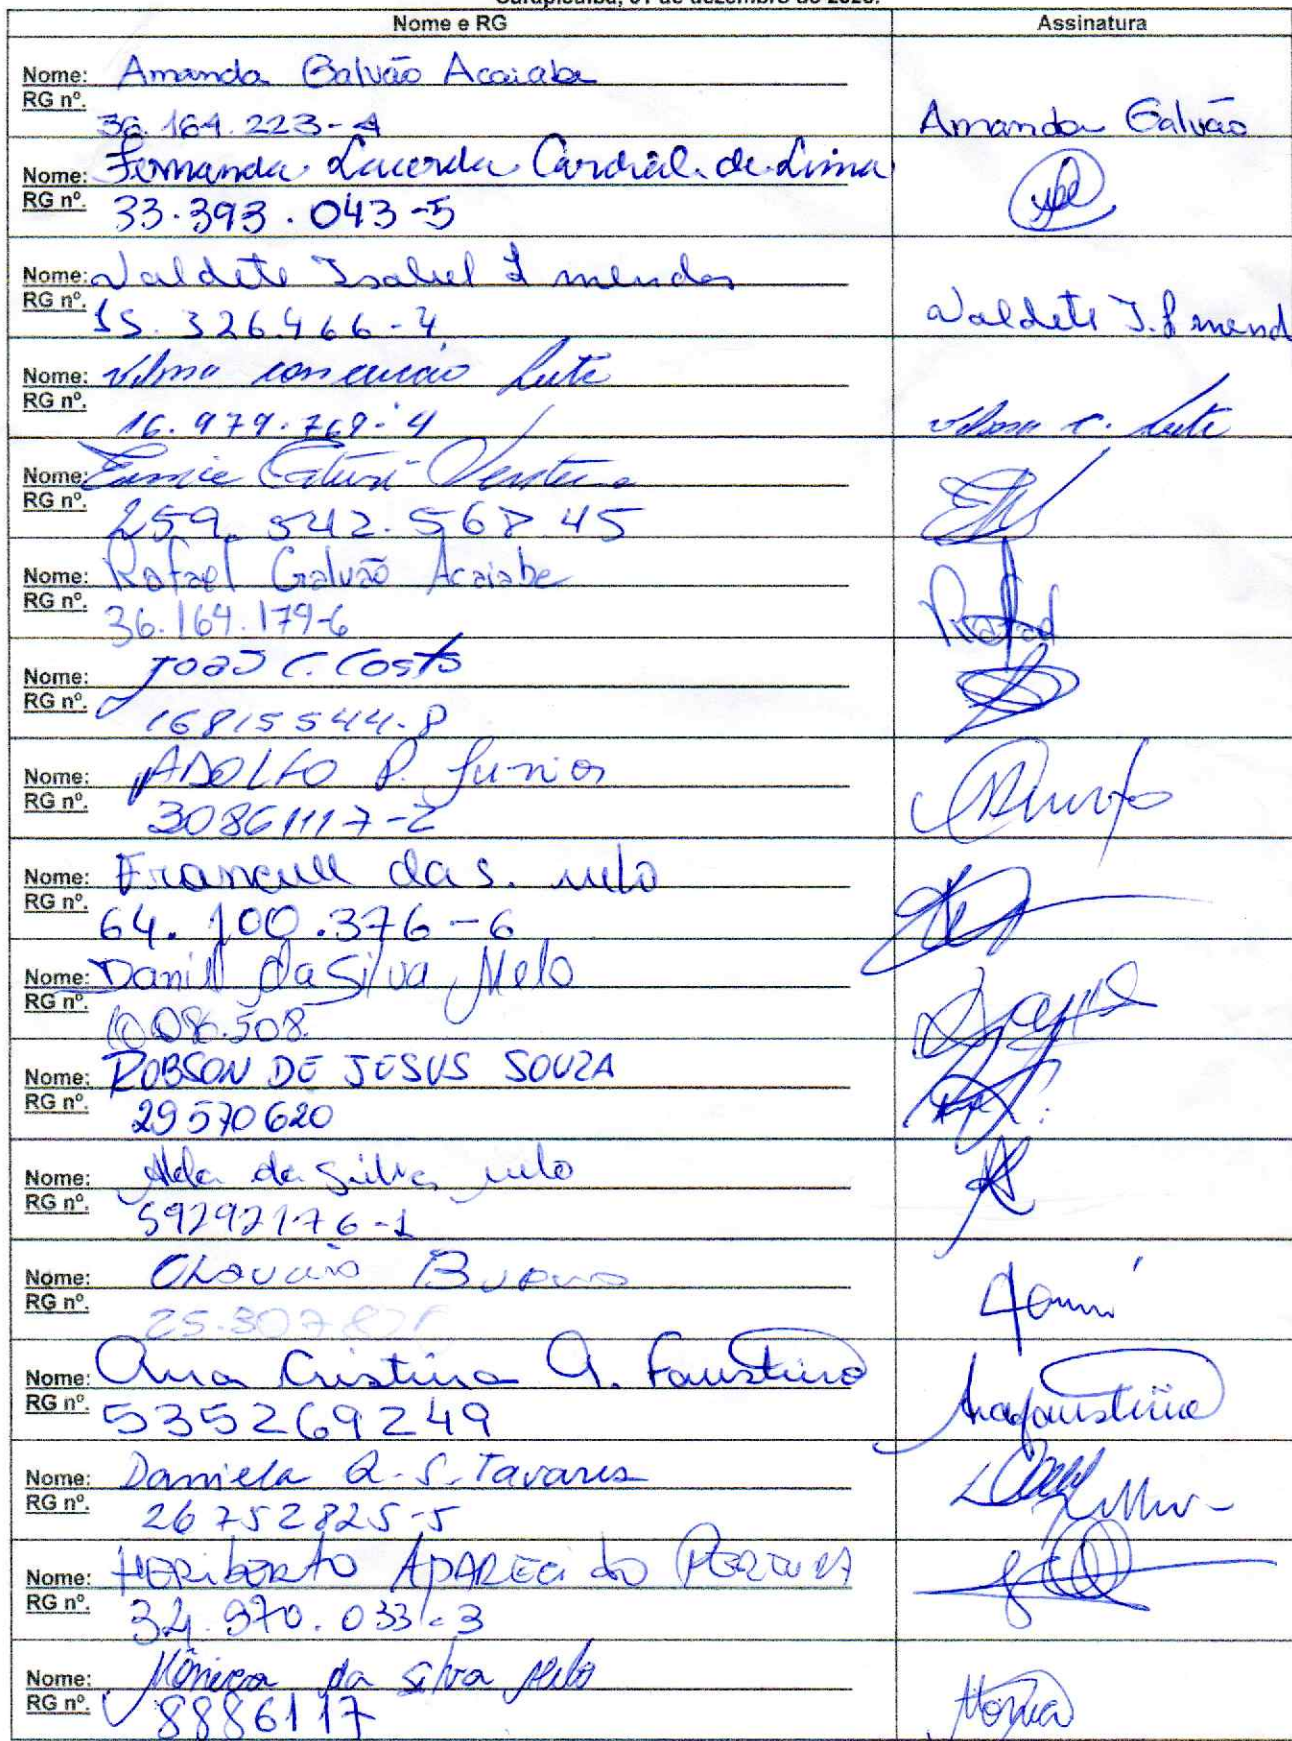 Carapicuíba, 01 de dezembro de 2020.
Nome e RG Assinatura
Nome: Amanda Galvão Acaiabe
RG nº. 36.164.223-4 Amanda Galvão
Nome: Fernanda Lacerda Cardial de Lima
RG nº. 33.393.043-5
Nome: Valdete Isabel L mendes
RG nº. 15.326.466-4 Valdete I. L mend
Nome: Vilma conceicão Leite
RG nº. 16.979.769-4 Vilma C. Leite
Nome: Eunice
RG nº. 259.542.568.45
Nome: Rafael Galvão Acaiabe
RG nº. 36.164.179-6 Rafael
Nome: João C. Costa
RG nº. 16815544-8
Nome: ADOLFO P. Junior
RG nº. 30861117-2
Nome: da S. melo
RG nº. 64.100.376-6
Nome: Daniel da Silva Melo
RG nº.
Nome: ROBSON DE JESUS SOUZA
RG nº. 29570620
Nome: Alda da Silva melo
RG nº. 59292176-1
Nome: Bueno
RG nº. 25.307
Nome: Ana Cristina A. Faustino
RG nº. 535269249 Anafaustino
Nome: Daniela Q. S. Tavares
RG nº. 26752825-5
Nome: HERIBERTO APARECIDO PEREIRA
RG nº. 34.970.033-3
Nome: Mônica da Silva Melo
RG nº. 8886117 Monica